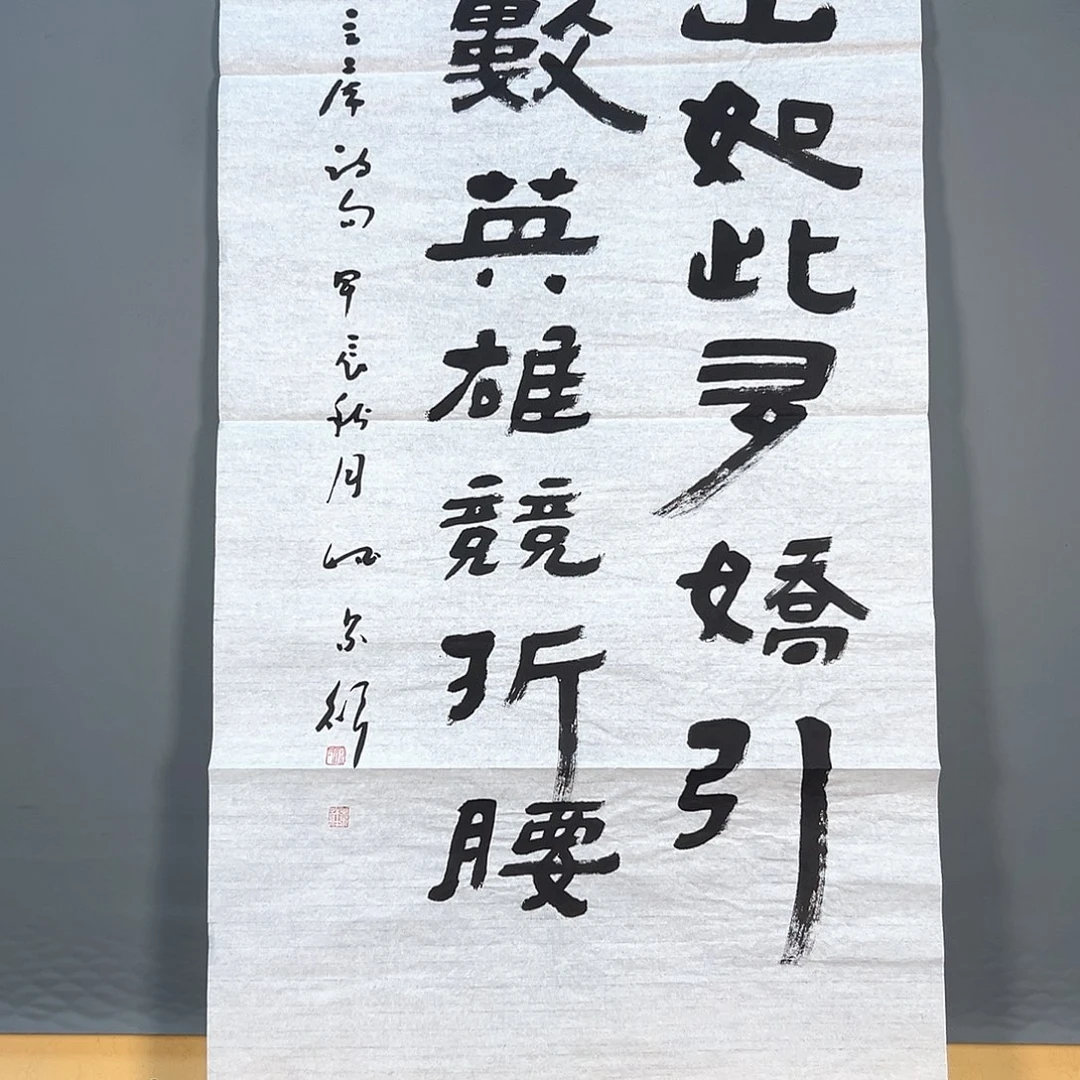 山如此多嬌引
數英雄競折腰
主席詩句甲辰秋月